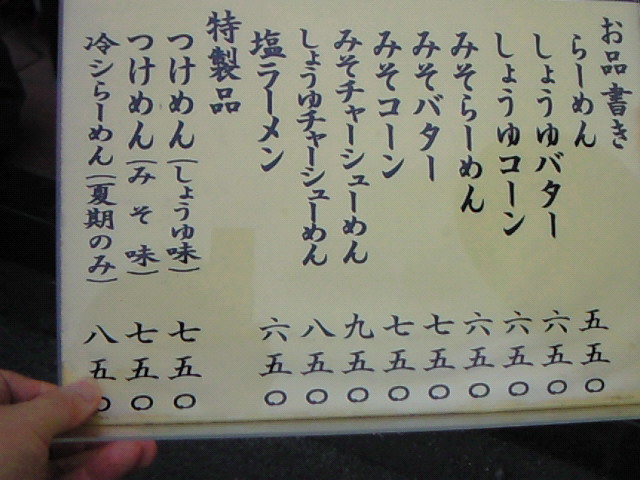 お品書き
らーめん 五五〇
しょうゆバター 六五〇
しょうゆコーン 六五〇
みそらーめん 六五〇
みそバター 七五〇
みそコーン 七五〇
みそチャーシューめん 九五〇
しょうゆチャーシューめん 八五〇
塩ラーメン 六五〇
特製品
つけめん(しょうゆ味) 七五〇
つけめん(みそ味) 七五〇
冷シらーめん(夏期のみ) 八五〇